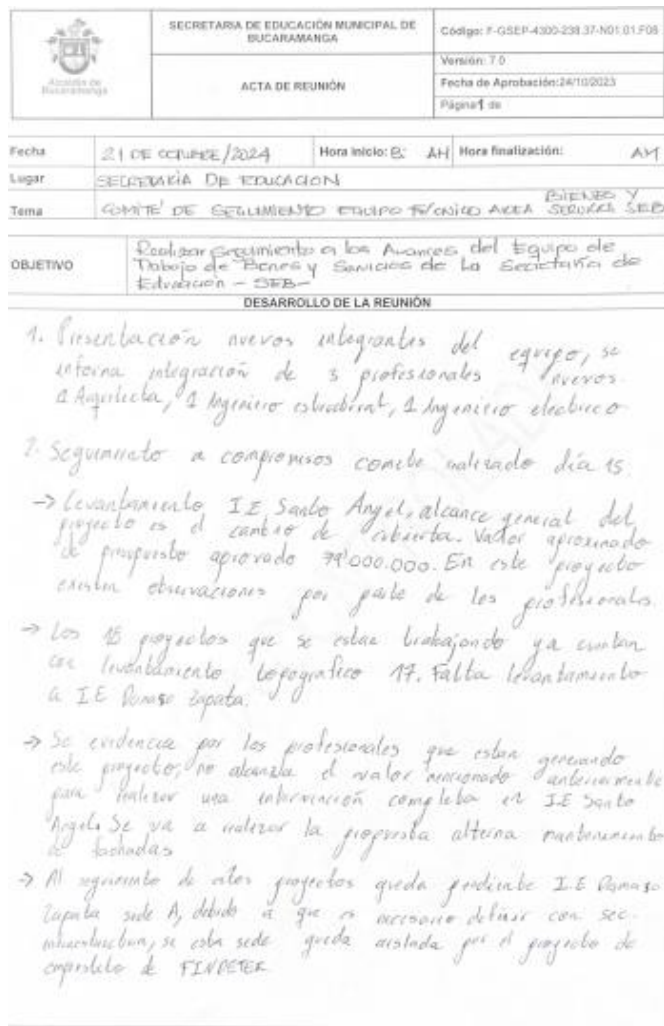 Alcaldía de
Bucaramanga
SECRETARIA DE EDUCACIÓN MUNICIPAL DE
BUCARAMANGA
ACTA DE REUNIÓN
Código: F-GSEP-4300-238.37-N01.01.F08
Versión: 7.0
Fecha de Aprobación:24/10/2023
Página 1 de
Fecha 21 DE OCTUBRE/2024 Hora Inicio: 8: AM Hora finalización: AM
Lugar SECRETARÍA DE EDUCACION
Tema COMITÉ DE SEGUIMIENTO EQUIPO TÉCNICO AREA BIENES Y SERVICIOS SEB
OBJETIVO
Realizar Seguimiento a los Avances del Equipo de
Trabajo de Bienes y Servicios de La Secretaría de
Educación - SEB-
DESARROLLO DE LA REUNIÓN
1. Presentación nuevos integrantes del equipo, se
informa integración de 3 profesionales nuevos.
1 Arquitecta, 1 Ingeniero estructural, 1 Ingeniero electrico
2. Seguimiento a compromisos comite realizado día 15.
→ Levantamiento I.E. Santo Angel, alcance general del
proyecto es el cambio de cubierta. Valor aproximado
de presupuesto aprovado 79'000.000. En este proyecto
existen observaciones por parte de los profesionales.
→ Los 18 proyectos que se estan trabajando ya cuentan
con levantamiento topografico 17. Falta levantamiento
a I.E Damaso Zapata.
→ Se evidencia por los profesionales que estan generando
este proyecto, no alcanza el valor mencionado anteriormente
para realizar una intervención completa en I.E Santo
Angel. Se va a realizar la propuesta alterna mantenimiento
a fachadas
→ Al seguimiento de otros proyectos queda pendiente I.E Damaso
Zapata sede A, debido a que es necesario definir con sec.
infraestructura, si esta sede queda aislada por el proyecto de
emprestito de FINDETER